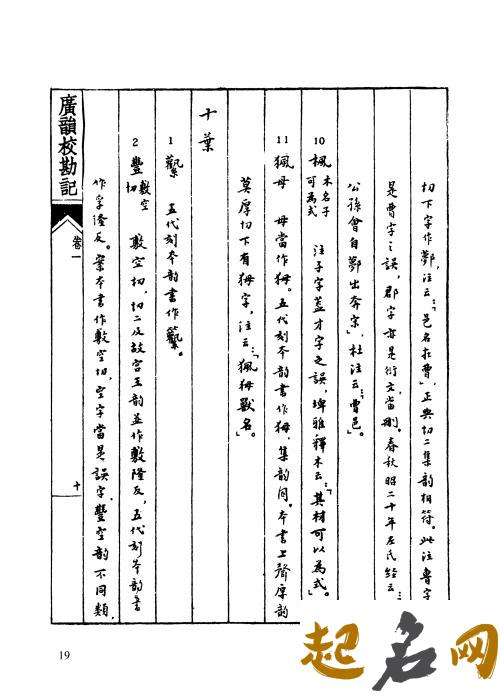 切下字作鄸，注云：「邑名在曹」，正與切二集韵相符。此注魯字
是曹字之誤，郡字亦是衍文當刪。春秋昭二十年左氏經云：「
公孫會自鄸出奔宋」，杜注云「曹邑」。
10 楓 木名子可為式 注子字蓋才字之誤，埤雅釋木云：「其材可以為式」。
11 㺉母 母當作㺱。五代刻本韵書作㺱，集韵同。本書上聲厚韵
莫厚切下有㺱字，注云：「㺉㺱獸名」。
十葉
1 蘩 五代刻本韵書作
2 豐 敷空切 敷空切，切二及故宮王韵並作敷隆反，五代刻本韵書
作孚隆反。案本書作敷空切，空字當是誤字，豐空韵不同類，
廣韻校勘記
卷一
十
19
起名网